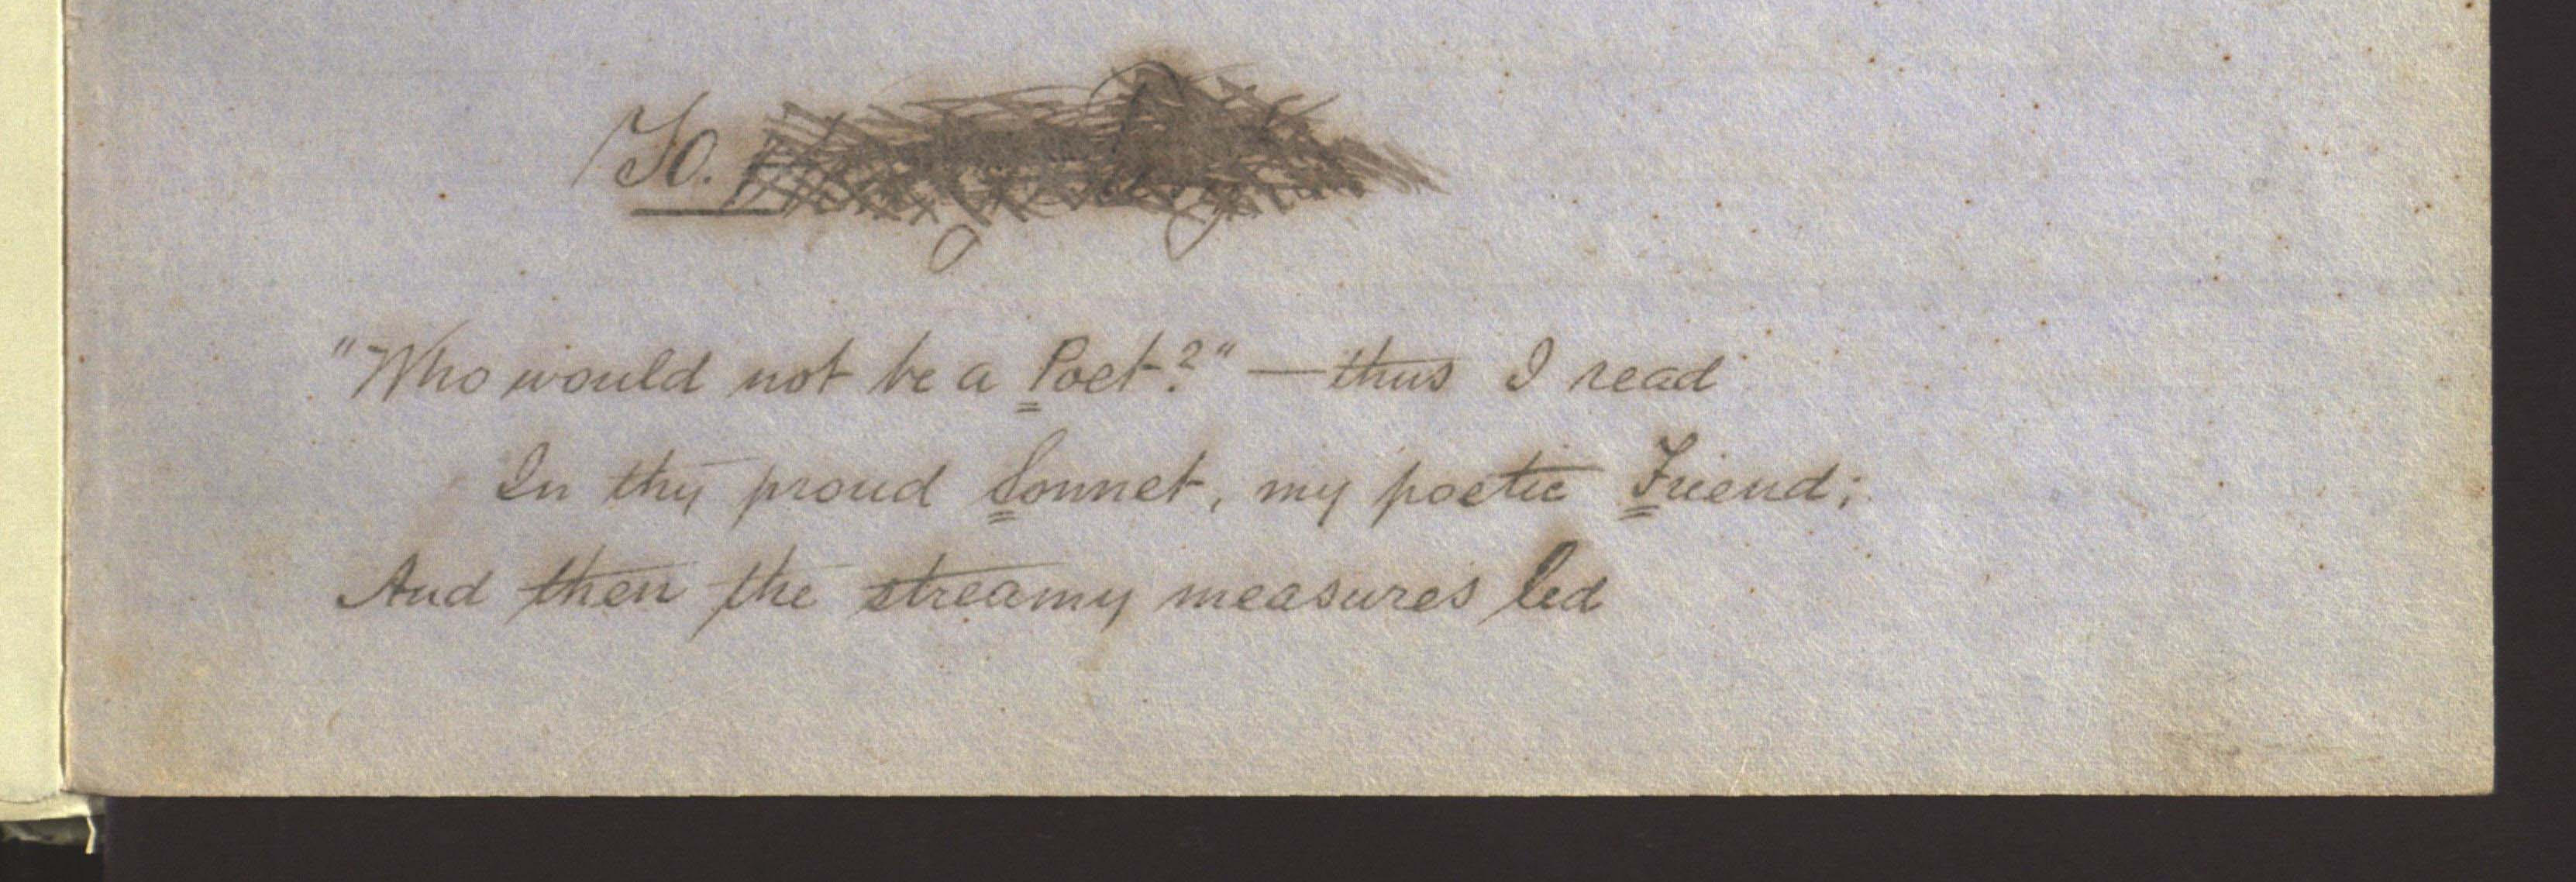 To.
"Who would not be a Poet?" — thus I read
In thy proud Sonnet, my poetic Friend;
And then the streamy measures led